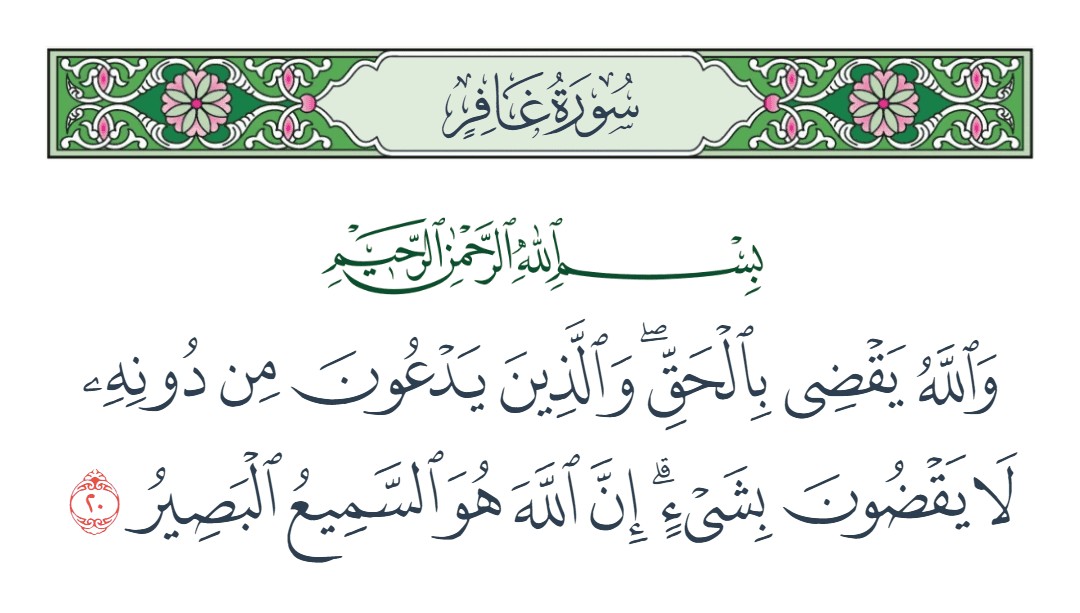 سُورَةُ غَافِرٍ
بِسْمِ ٱللَّهِ ٱلرَّحْمَٰنِ ٱلرَّحِيمِ
وَٱللَّهُ يَقْضِى بِٱلْحَقِّ ۖ وَٱلَّذِينَ يَدْعُونَ مِن دُونِهِۦ
لَا يَقْضُونَ بِشَىْءٍ ۗ إِنَّ ٱللَّهَ هُوَ ٱلسَّمِيعُ ٱلْبَصِيرُ ٢٠